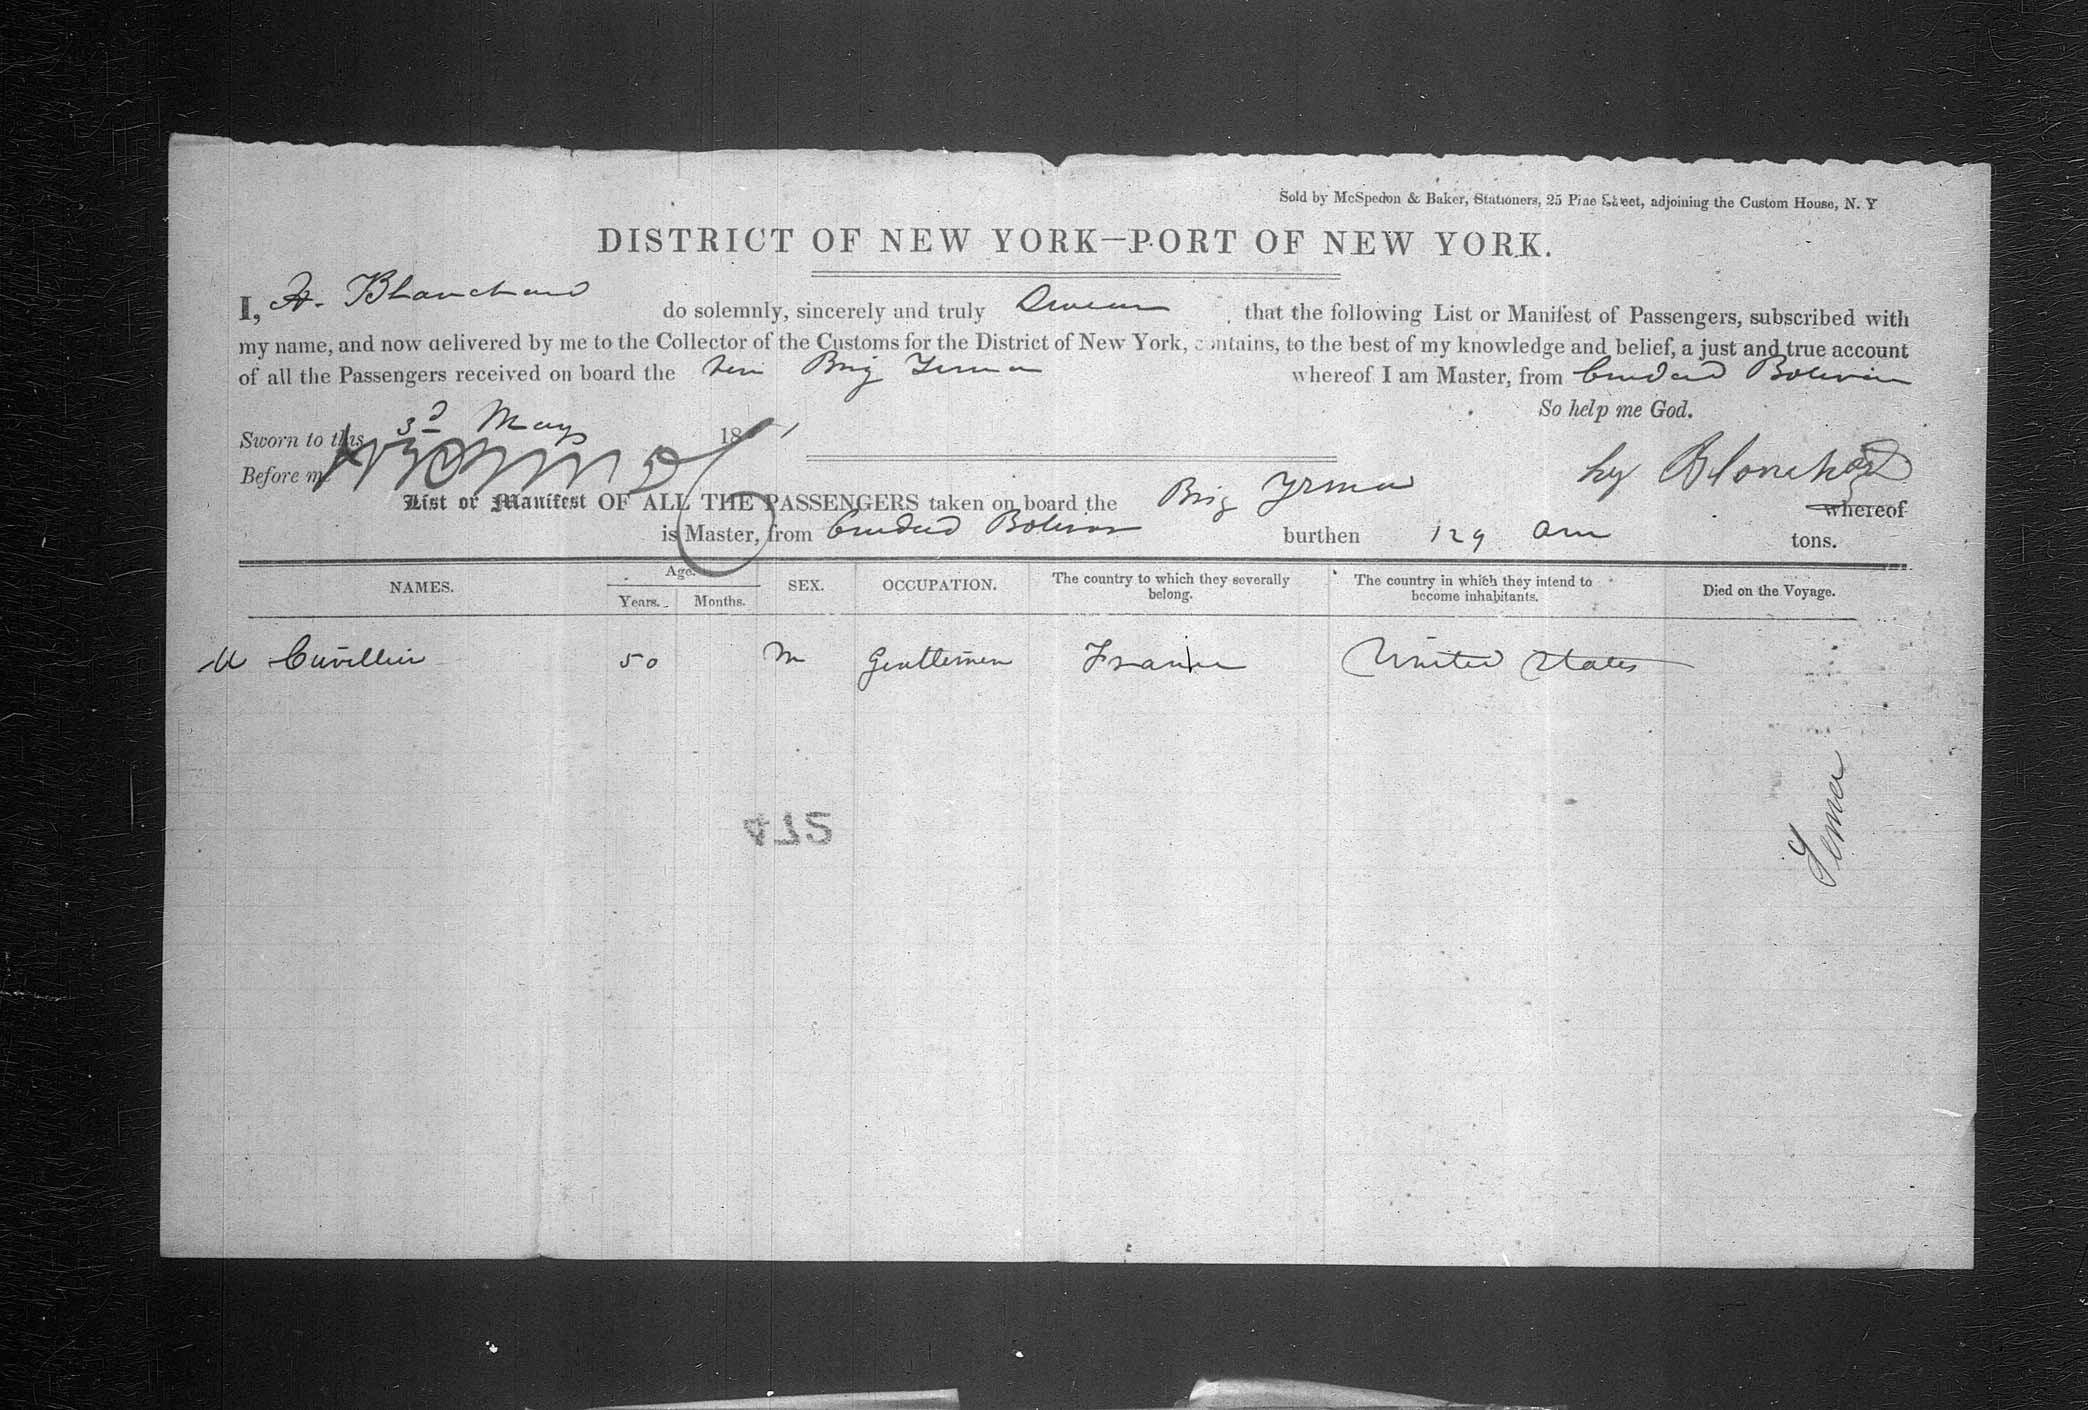 Sold by McSpedon & Baker, Stationers, 25 Pine Street, adjoining the Custom House, N. Y
DISTRICT OF NEW YORK—PORT OF NEW YORK.
I, H. Blanchard do solemnly, sincerely and truly Swear that the following List or Manifest of Passengers, subscribed with
my name, and now delivered by me to the Collector of the Customs for the District of New York, contains, to the best of my knowledge and belief, a just and true account
of all the Passengers received on board the Brig Irma whereof I am Master, from Ciudad Bolivar
So help me God.
Sworn to this 3d May 18
Before me
Hy Blanchard
List or Manifest OF ALL THE PASSENGERS taken on board the Brig Irma whereof
is Master, from Ciudad Bolivar burthen 129 tons.
NAMES. Age. Years. Months. SEX. OCCUPATION. The country to which they severally belong. The country in which they intend to become inhabitants. Died on the Voyage.
M Cuvillier 50 M Gentlemen France United States
472
Irma